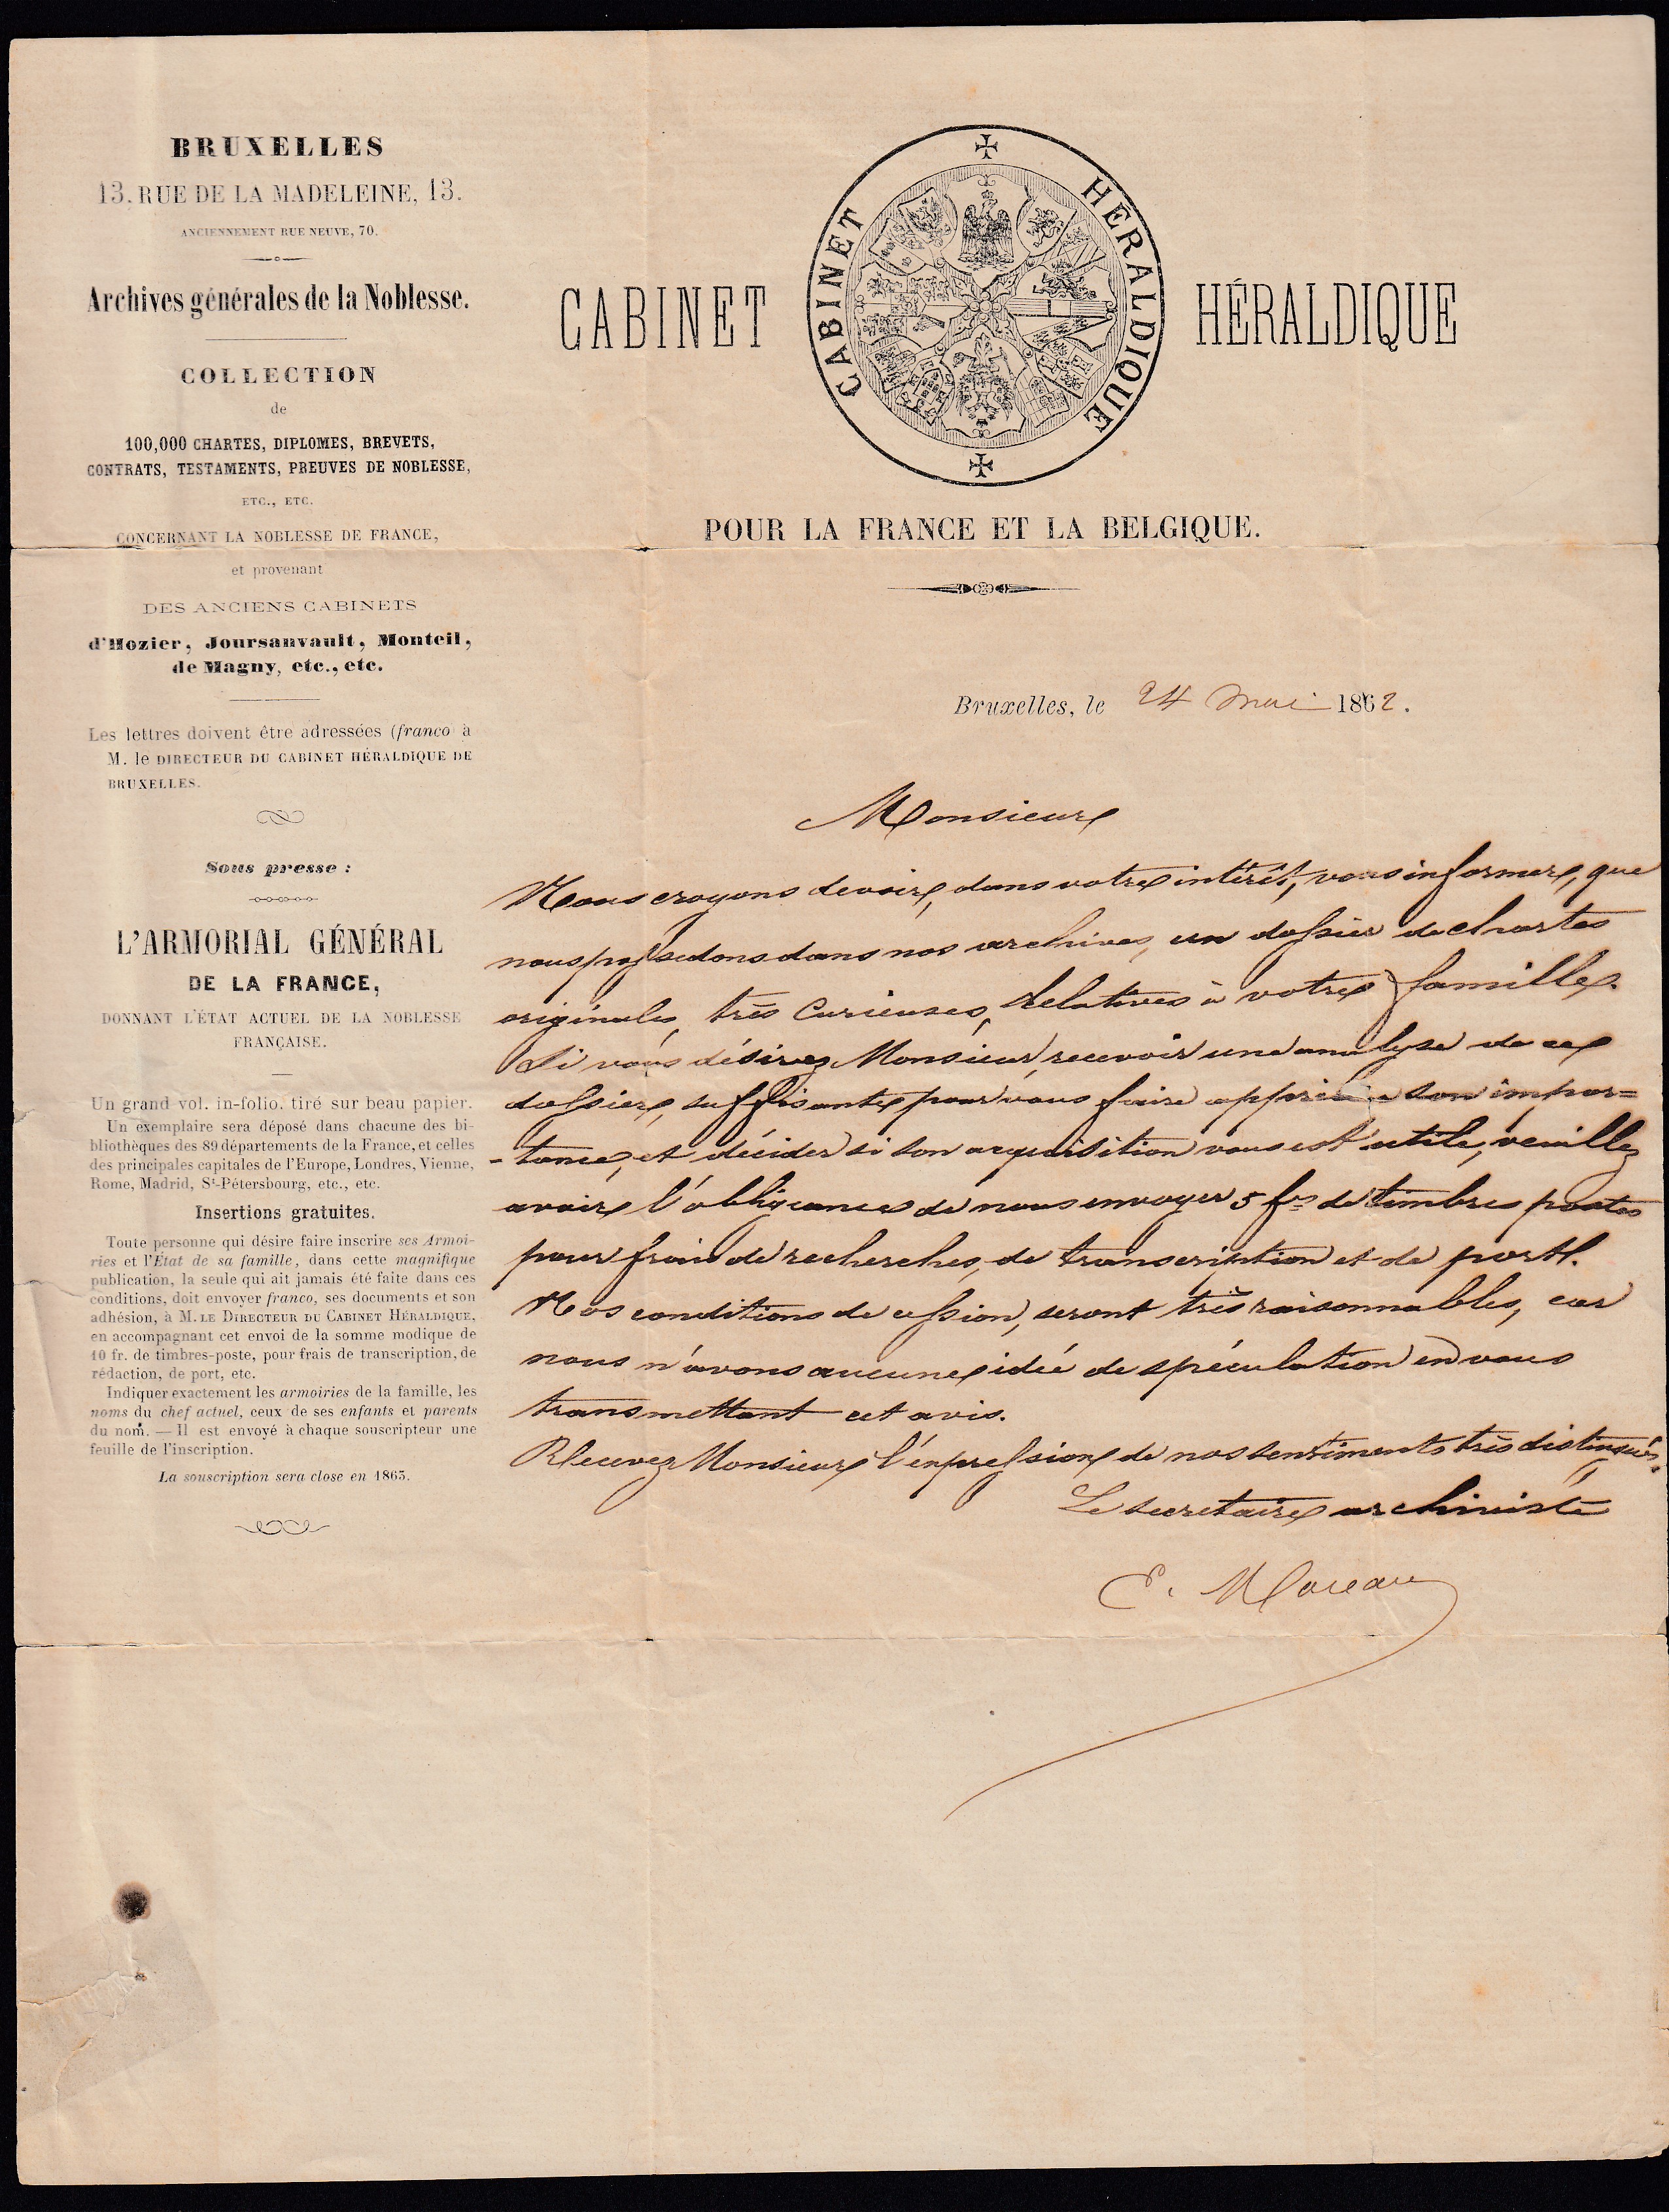 BRUXELLES
13. RUE DE LA MADELEINE, 13.
ANCIENNEMENT RUE NEUVE, 70.
Archives générales de la Noblesse.
COLLECTION
de
100,000 CHARTES, DIPLOMES, BREVETS,
CONTRATS, TESTAMENTS, PREUVES DE NOBLESSE,
ETC., ETC.
CONCERNANT LA NOBLESSE DE FRANCE,
et provenant
DES ANCIENS CABINETS
d'Hozier, Joursanvault, Monteil,
de Magny, etc., etc.
Les lettres doivent être adressées (franco) à
M. le DIRECTEUR DU CABINET HÉRALDIQUE DE
BRUXELLES.
Sous presse :
L'ARMORIAL GÉNÉRAL
DE LA FRANCE,
DONNANT L'ÉTAT ACTUEL DE LA NOBLESSE
FRANÇAISE.
Un grand vol. in-folio. tiré sur beau papier.
Un exemplaire sera déposé dans chacune des bi-
bliothèques des 89 départements de la France, et celles
des principales capitales de l'Europe, Londres, Vienne,
Rome, Madrid, St-Pétersbourg, etc., etc.
Insertions gratuites.
Toute personne qui désire faire inscrire ses Armoi-
ries et l'État de sa famille, dans cette magnifique
publication, la seule qui ait jamais été faite dans ces
conditions, doit envoyer franco, ses documents et son
adhésion, à M. LE DIRECTEUR DU CABINET HÉRALDIQUE,
en accompagnant cet envoi de la somme modique de
10 fr. de timbres-poste, pour frais de transcription, de
rédaction, de port, etc.
Indiquer exactement les armoiries de la famille, les
noms du chef actuel, ceux de ses enfants et parents
du nom. — Il est envoyé à chaque souscripteur une
feuille de l'inscription.
La souscription sera close en 1863.
CABINET HÉRALDIQUE
CABINET HÉRALDIQUE
POUR LA FRANCE ET LA BELGIQUE.
Bruxelles, le 24 Mai 1862.
Monsieur
Nous croyons devoir, dans votre intérêt, vous informer, que
nous possedons dans nos archives, un dossier de chartes
originales, très Curieuses, Relatives à votre famille.
Si vous désirez Monsieur, recevoir une analyse de ce
dossier, suffisante pour vous faire apprécier son impor=
-tance, et décider si son acquisition vous est utile, veuillez
avoir l'obligeance de nous envoyer 5 fs de timbres postes
pour frais de recherches, de transcription et de port.
Nos conditions de cession, seront très raisonnables, car
nous n'avons aucune idée de spéculation en vous
transmettant cet avis.
Recevez Monsieur l'expression de nos sentiments très distingués.
Le secretaire archiviste
E. Moreau